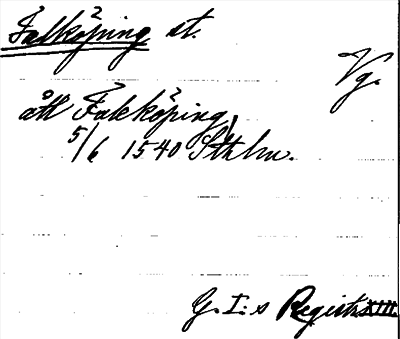 Falköping st.
Vg.
ått Faleköping,
5/6 1540 Sthlm.
G. I:s Registr. XIII.